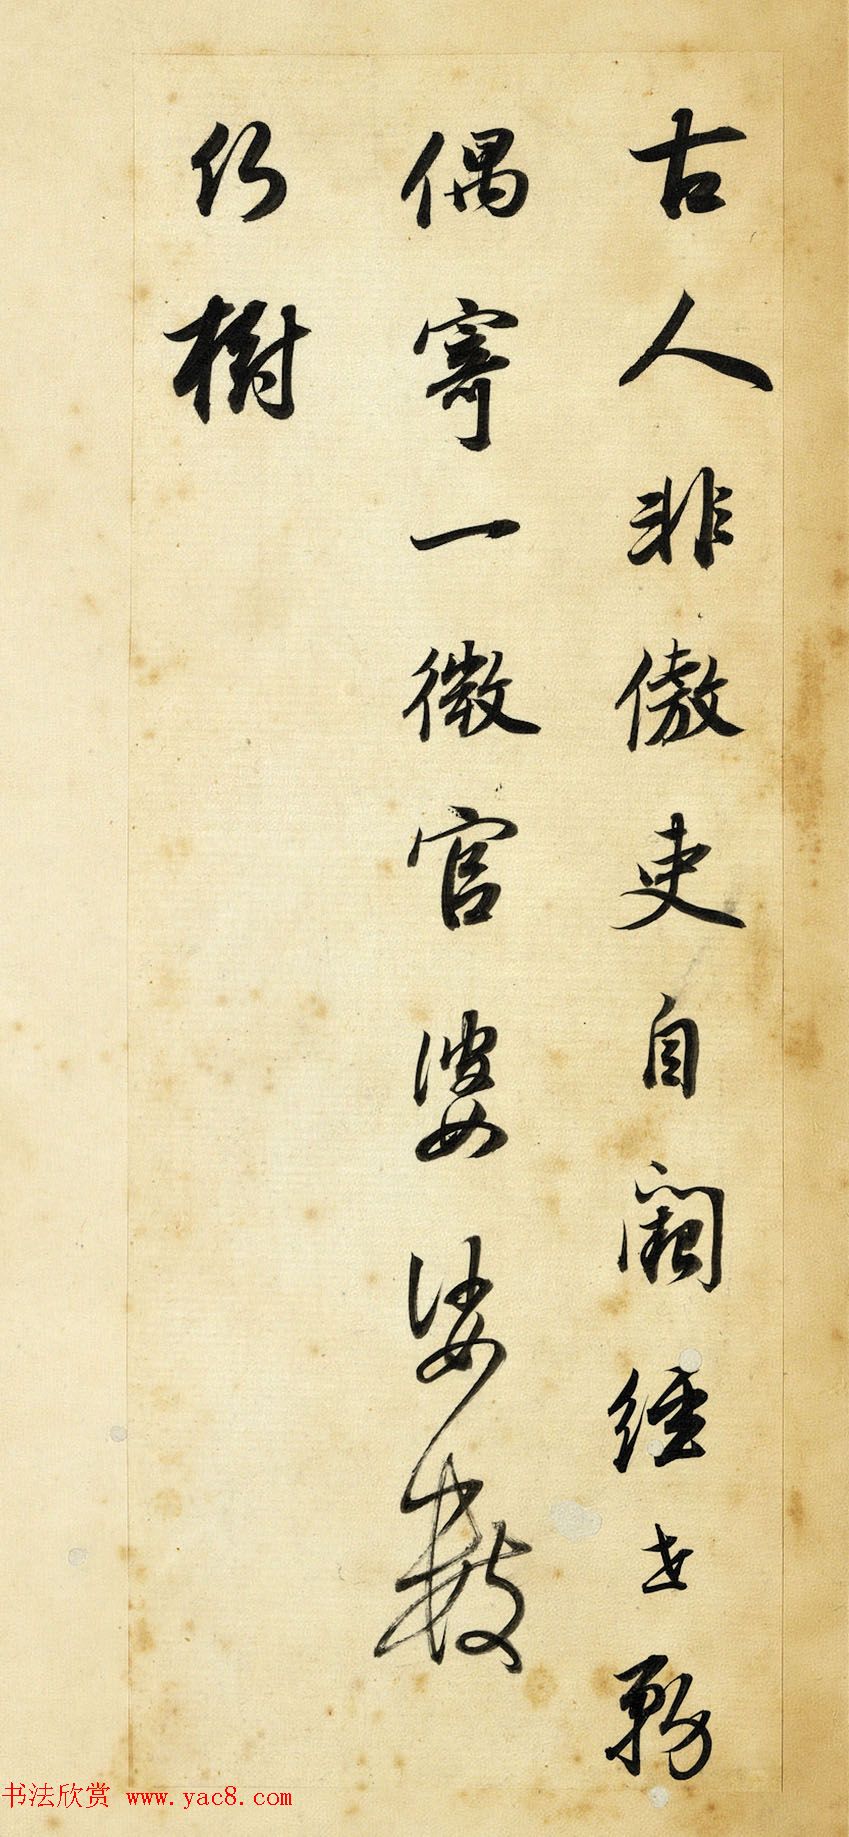 古人非傲吏自闕經世務
偶寄一微官婆娑數
行樹
书法欣赏 www.yac8.com